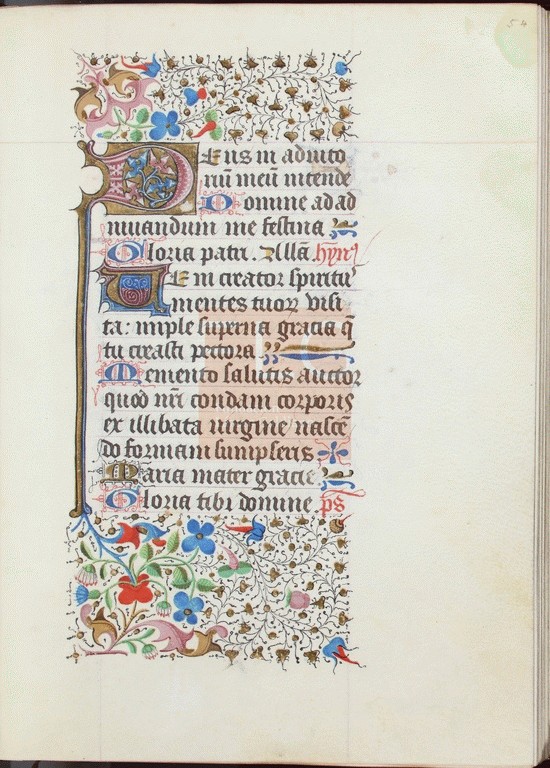 54
Deus in adiuto
riū meū intende
Domine ad ad
iuuandum me festina
Gloria patri. Allā hyn̄
Veni creator spiritu᷒
mentes tuoꝝ visi
ta: imple superna gracia q̄
tu creasti pectora
Memento salutis auctor
quod nr̄i condam corporis
ex illibata uirgine nascē
do formam sumpseris
Maria mater gracie
Gloria tibi domine p̄s